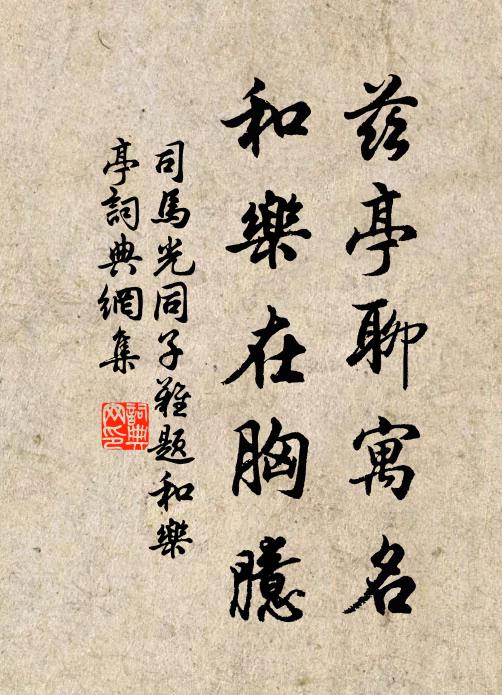 茲亭聊寓名
和樂在胸臆
司馬光同子難題和樂
亭詞典網集
詞典網印